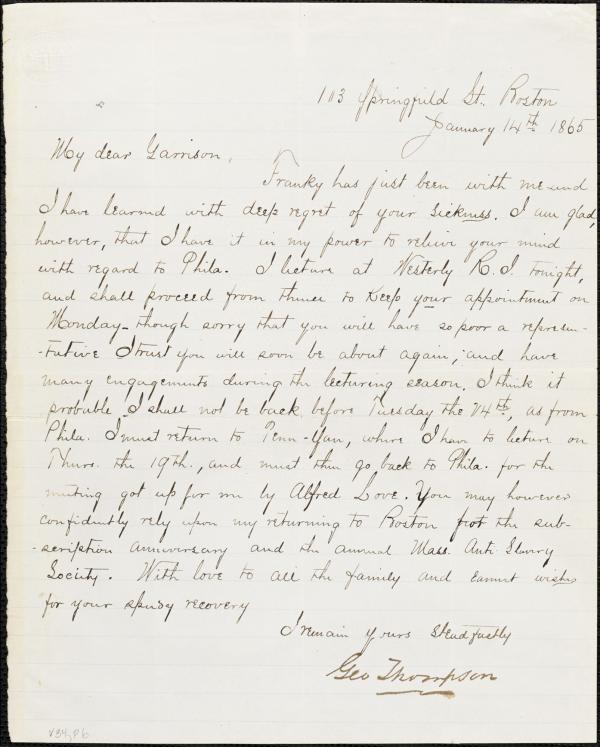 113 Springfield St. Boston
January 14th 1865
My dear Garrison,
Franky has just been with me and
I have learned with deep regret of your sickness. I am glad,
however, that I have it in my power to relieve your mind
with regard to Phila. I lecture at Westerly R. I. tonight,
and shall proceed from thence to keep your appointment on
Monday - though sorry that you will have so poor a represen-
-tative I trust you will soon be about again, and have
many engagements during the lecturing season. I think it
probable I shall not be back before Tuesday the 24th, as from
Phila. I must return to Penn-Yan, where I have to lecture on
Thurs. the 19th., and must then go back to Phila. for the
meeting got up for me by Alfred Love. You may however
confidently rely upon my returning to Boston for the sub-
-scription anniversary and the annual Mass. Anti Slavery
Society. With love to all the family and earnest wishes
for your speedy recovery
I remain yours steadfastly
Geo Thompson
V34, P6